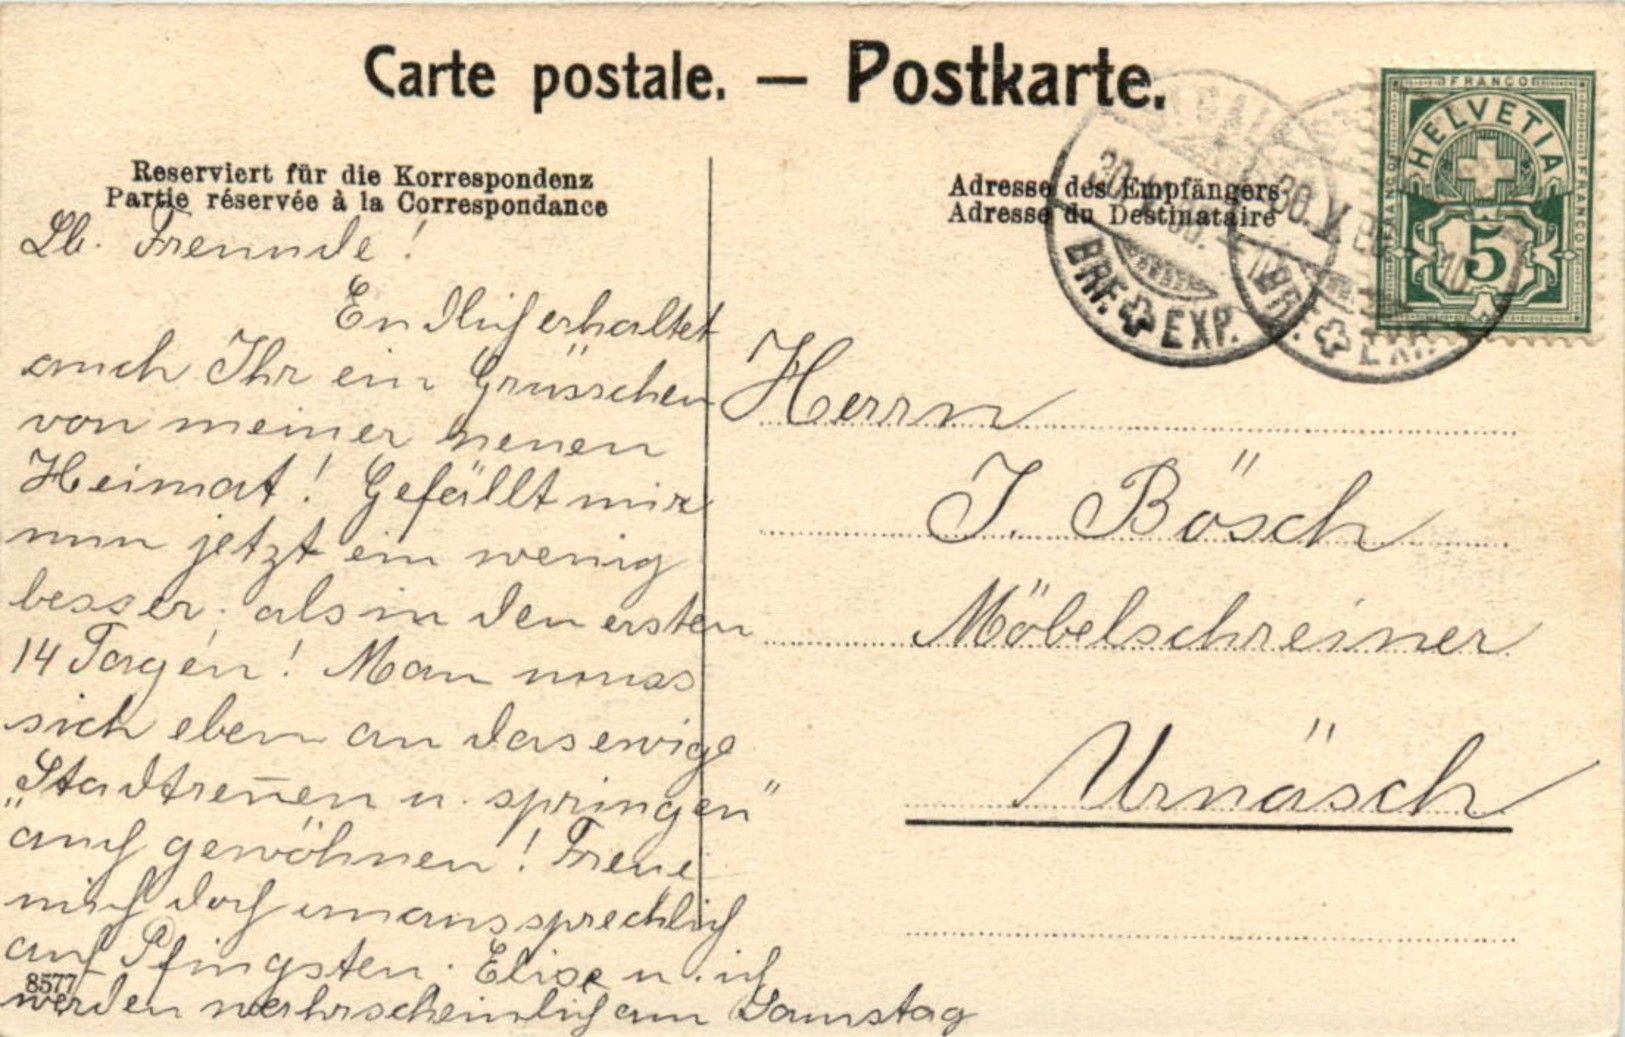 Carte postale. — Postkarte.
Reserviert für die Korrespondenz
Partie réservée à la Correspondance
Lb. Freunde!
Endlich erhaltet
auch Ihr ein Grüsschen
von meiner neuen
Heimat! Gefällt mir
nun jetzt ein wenig
besser, als in den ersten
14 Tagen! Man muss
sich eben an das ewige
„Stadtreñen u. springen"
auch gewöhnen! Freue
mich doch unaussprechlich
auf Pfingsten. Elise u. ich
werden wahrscheinlich am Samstag
8577
Adresse des Empfängers
Adresse du Destinataire
Herrn
J. Bösch
Möbelschreiner
Urnäsch
FRANCO
HELVETIA
FRANCO
FRANCO
5
30.V.
BRF. EXP.
30.V.
BRF. EXP.